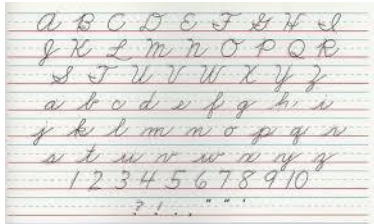 A B C D E F G H I
J K L M N O P Q R
S T U V W X Y Z
a b c d e f g h i
j k l m n o p q r
s t u v w x y z
1 2 3 4 5 6 7 8 9 10
? ! . , " " "